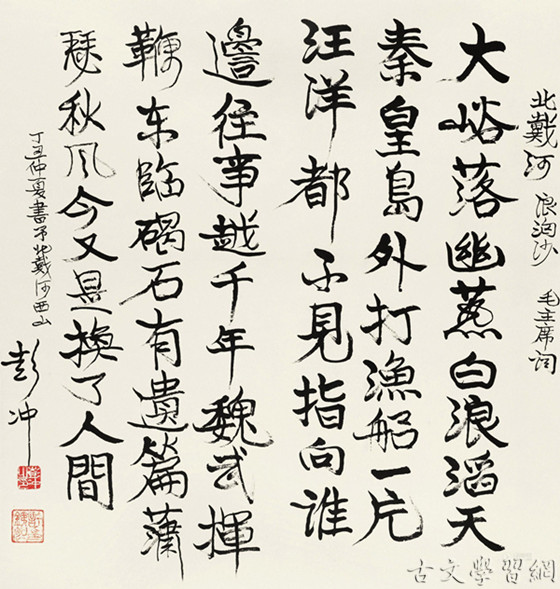 北戴河 浪淘沙 毛主席词
大峪落幽燕白浪滔天
秦皇島外打漁船一片
汪洋都不見指向谁
邊往事越千年魏武揮
鞭东臨碣石有遺篇蕭
瑟秋风今又是换了人間
丁丑仲夏書于北戴河西山
彭冲
古文學習網